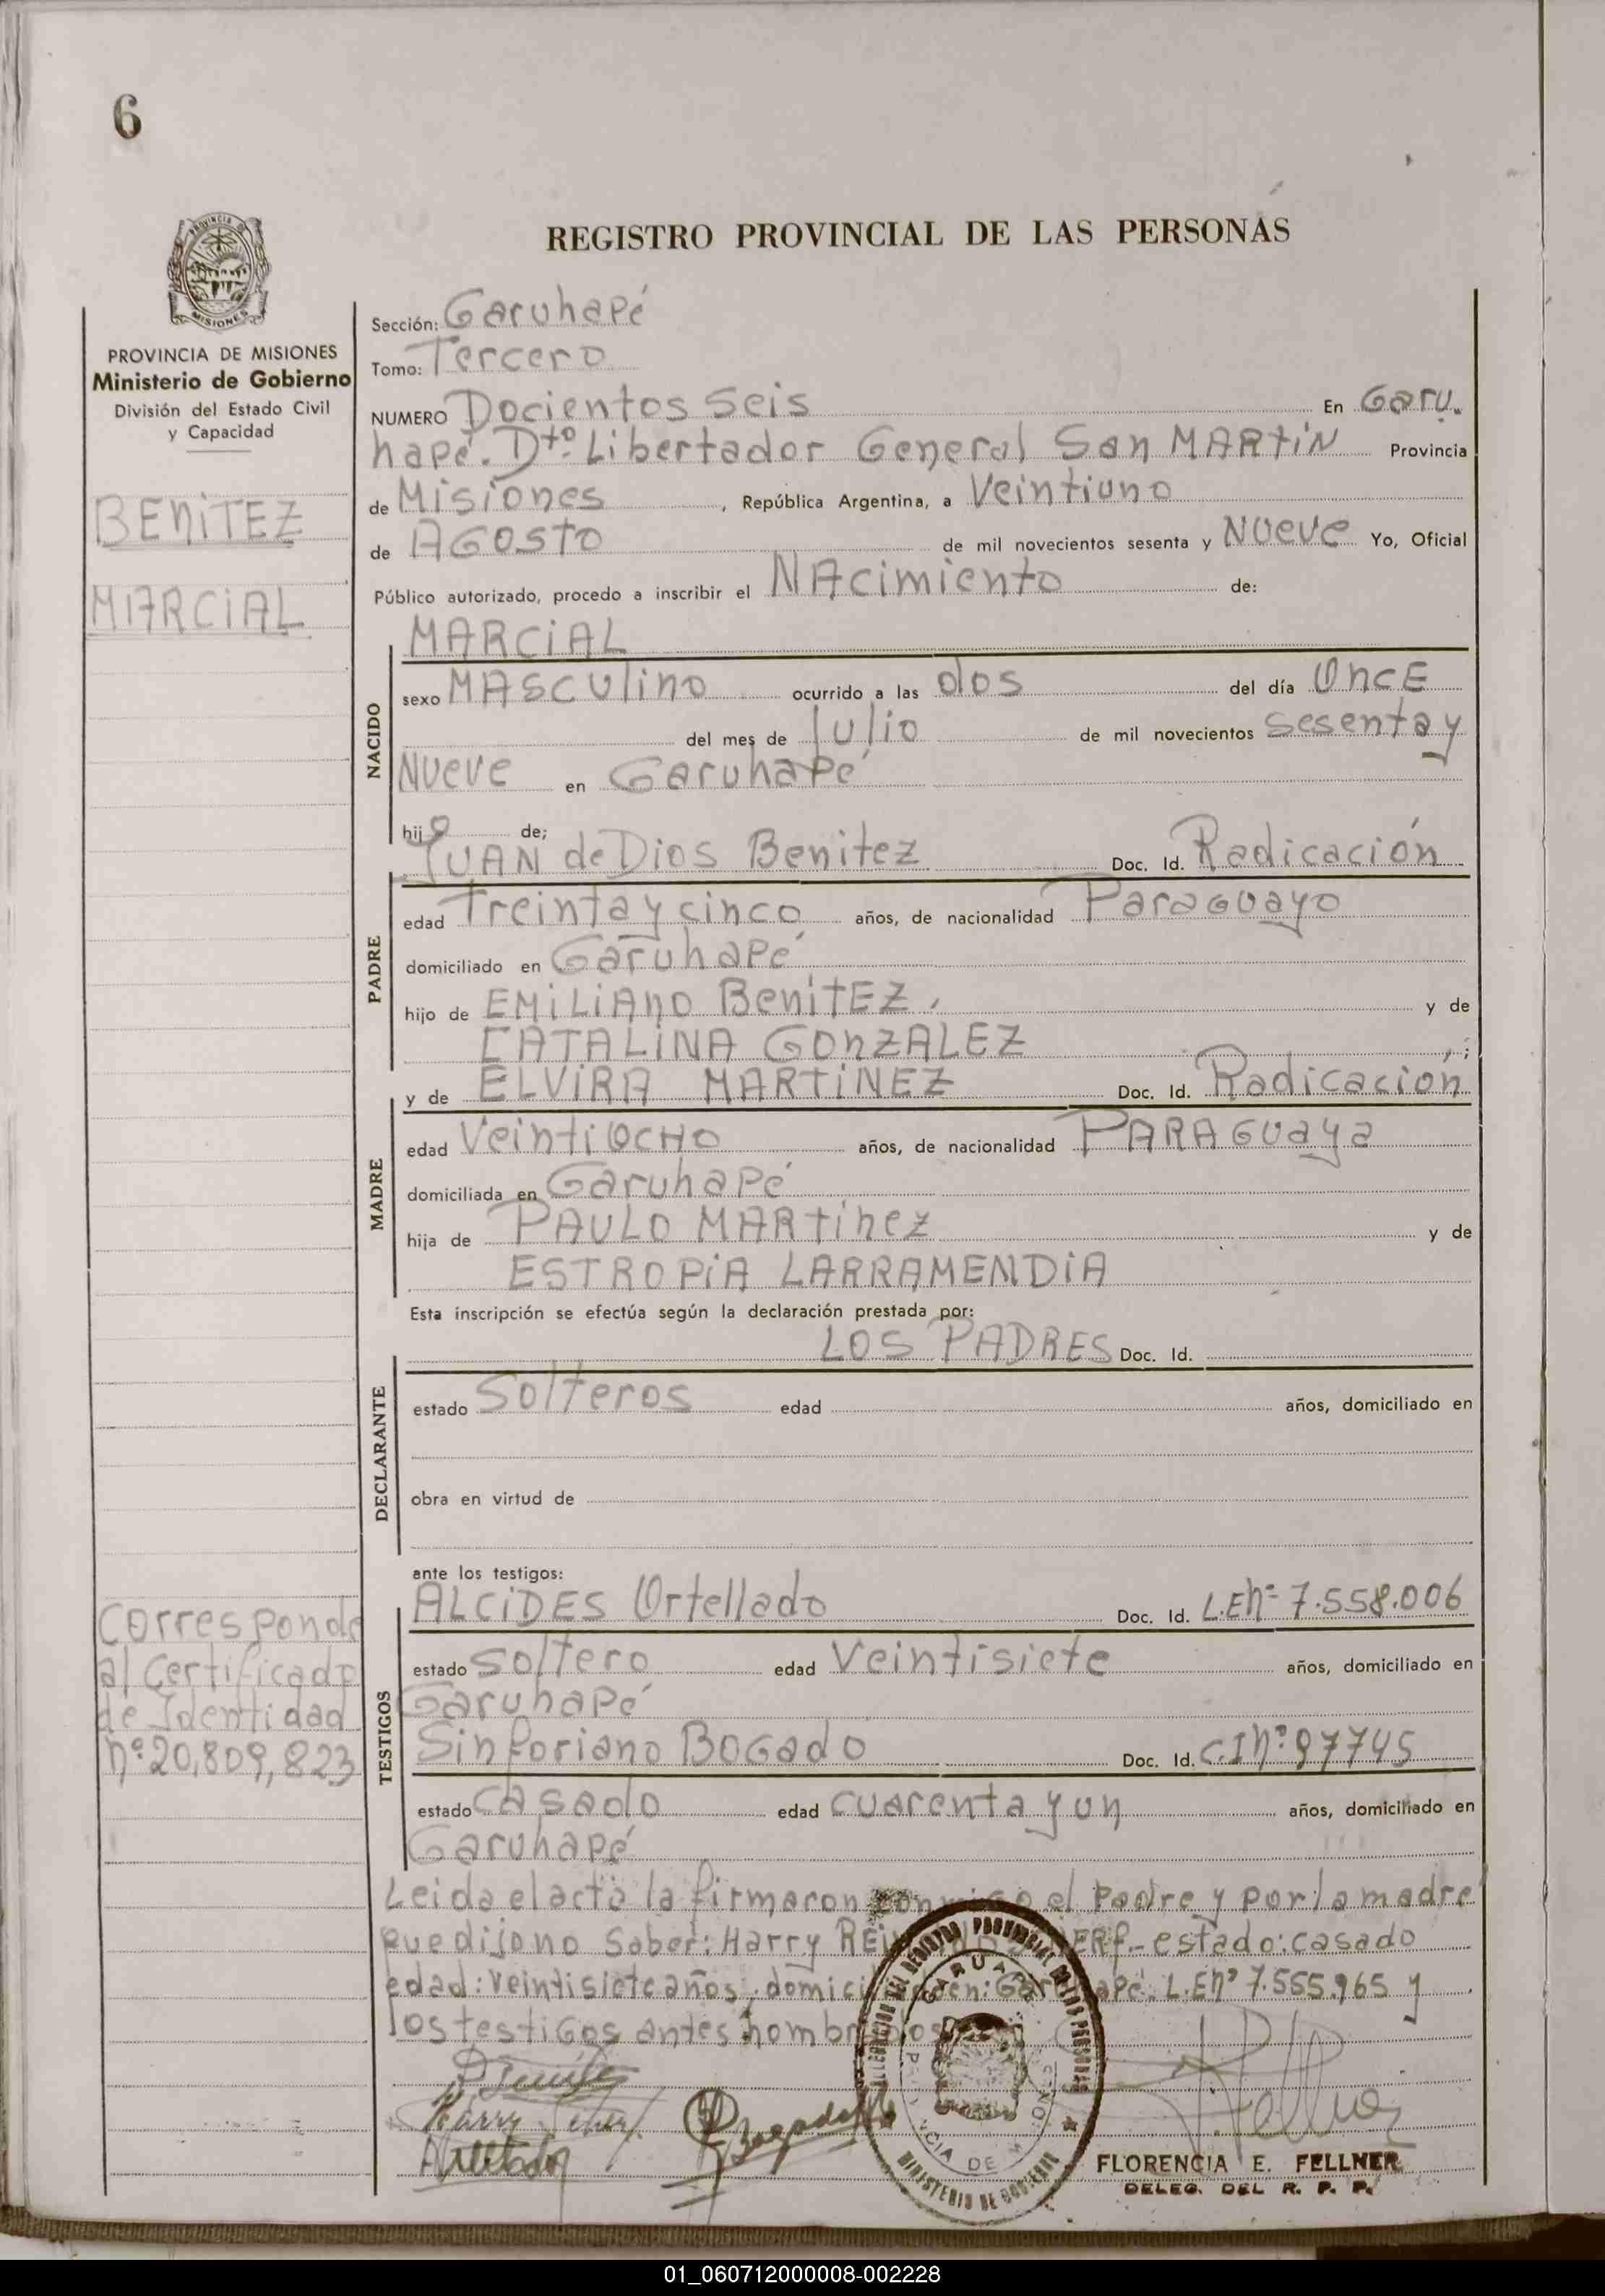 6
PROVINCIA DE MISIONES
Ministerio de Gobierno
División del Estado Civil
y Capacidad
BENITEZ
MARCIAL
Corresponde
al Certificado
de Identidad
nº 20,809,823
REGISTRO PROVINCIAL DE LAS PERSONAS
Sección: Garuhapé
Tomo: Tercero
NUMERO Docientos Seis En Garu.
hapé. Dtº Libertador General San MARTIN Provincia
de Misiones, República Argentina, a Veintiuno
de AGOSTO de mil novecientos sesenta y NUEVE Yo, Oficial
Público autorizado, procedo a inscribir el NAcimiento de:
MARCIAL
NACIDO
sexo MASculino ocurrido a las dos del día OncE
del mes de Julio de mil novecientos Sesenta y
Nueve en Garuhapé
hijo de;
JUAN de Dios Benitez Doc. Id. Radicación
PADRE
edad Treinta y cinco años, de nacionalidad Paraguayo
domiciliado en Garuhapé
hijo de EMiLiAno BenitEZ, y de
CATALINA GOnZALEZ ;
y de ELVIRA MARTINEZ Doc. Id. Radicación
MADRE
edad VeintiOCHO años, de nacionalidad PARAGuaya
domiciliada en Garuhapé
hija de PAULO MARTinez y de
ESTROPIA LARRAMENDIA
Esta inscripción se efectúa según la declaración prestada por:
LOS PADRES Doc. Id.
DECLARANTE
estado Solteros edad años, domiciliado en
obra en virtud de
ante los testigos:
ALCIDES Ortellado Doc. Id. L.Enº 7.558.006
TESTIGOS
estado Soltero edad Veintisiete años, domiciliado en
Garuhapé
Sinforiano BOGado Doc. Id. C.I nº 97745
estado casado edad cuarenta y un años, domiciliado en
Garuhapé
Leida el acta la firmaron conmigo el Padre y por la madre
que dijo no Saber: Harry estado: casado
edad: veintisiete años, domiciliado en: Garuhapé. L.Enº 7.555.965 y
los testigos antes nombrados
GARUHAPE
PROVINCIA DE MISIONES
MINISTERIO DE GOBIERNO
FLORENCIA E. FELLNER
DELEG. DEL R. P. P.
01_060712000008-002228